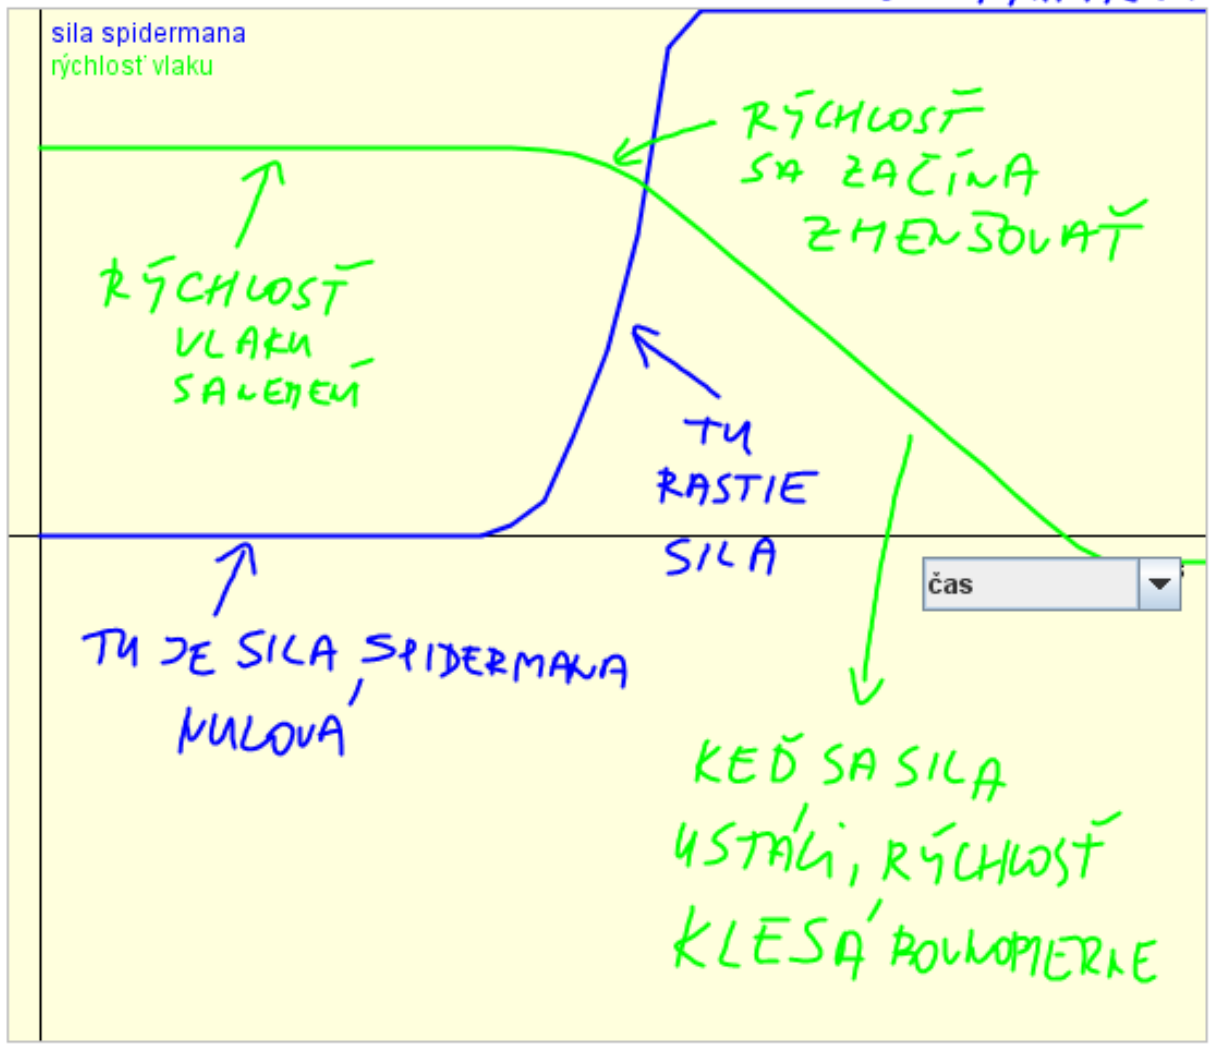 sila spidermana
rýchlosť vlaku
RÝCHLOSŤ
SA ZAČÍNA
ZMENŠOVAŤ
RÝCHLOSŤ
VLAKU
SA NEMENÍ
TU
RASTIE
SILA
čas
TU JE SILA SPIDERMANA
NULOVÁ
KEĎ SA SILA
USTÁLI, RÝCHLOSŤ
KLESÁ ROVNOMERNE